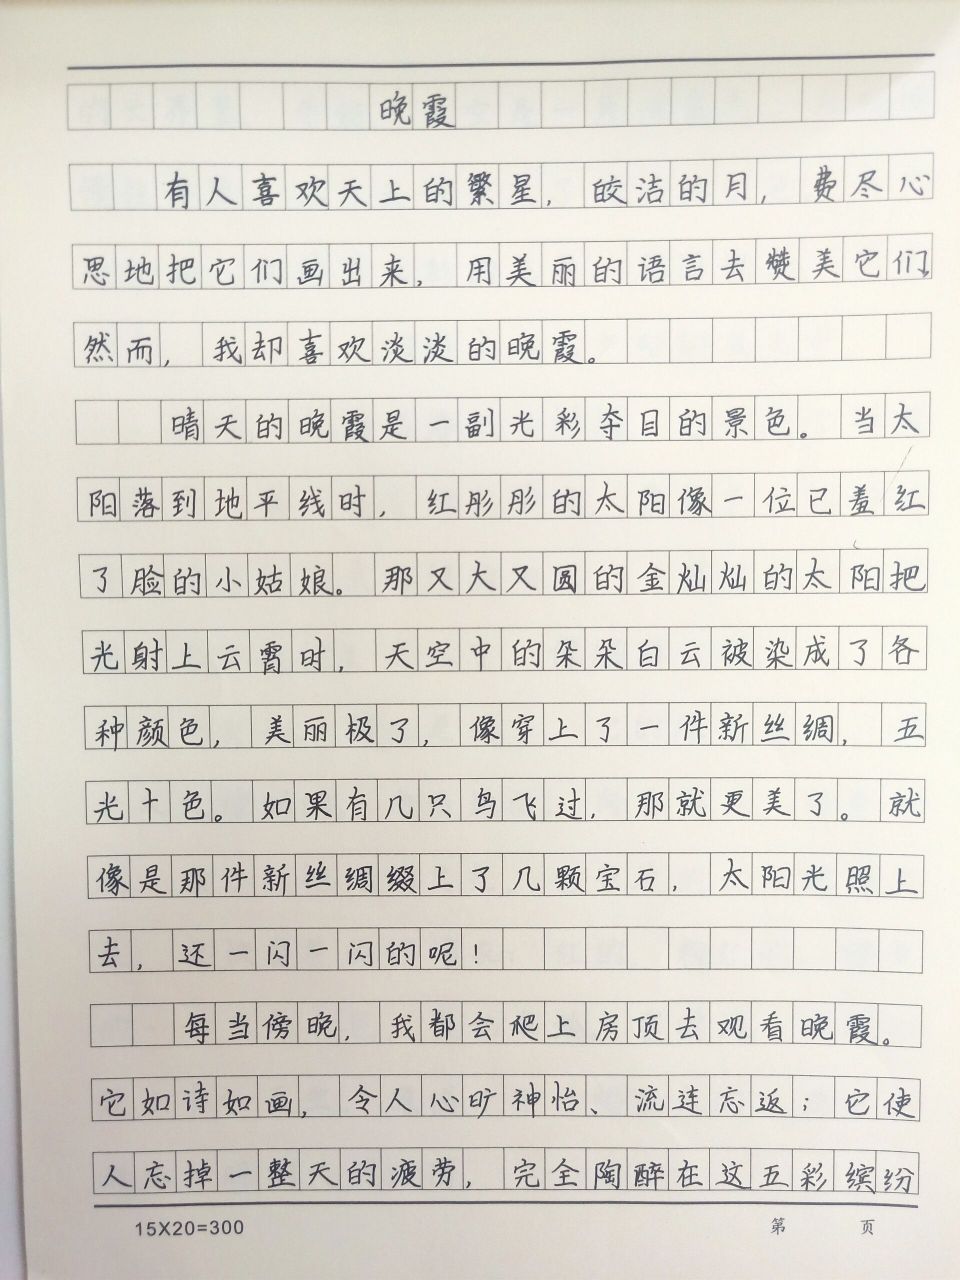 晚霞
有人喜欢天上的繁星，皎洁的月，费尽心
思地把它们画出来，用美丽的语言去赞美它们，
然而，我却喜欢淡淡的晚霞。
晴天的晚霞是一副光彩夺目的景色。当太
阳落到地平线时，红彤彤的太阳像一位已羞红
了脸的小姑娘。那又大又圆的金灿灿的太阳把
光射上云霄时，天空中的朵朵白云被染成了各
种颜色，美丽极了，像穿上了一件新丝绸，五
光十色。如果有几只鸟飞过，那就更美了。就
像是那件新丝绸缀上了几颗宝石，太阳光照上
去，还一闪一闪的呢！
每当傍晚，我都会爬上房顶去观看晚霞。
它如诗如画，令人心旷神怡、流连忘返；它使
人忘掉一整天的疲劳，完全陶醉在这五彩缤纷
15X20=300 第 页